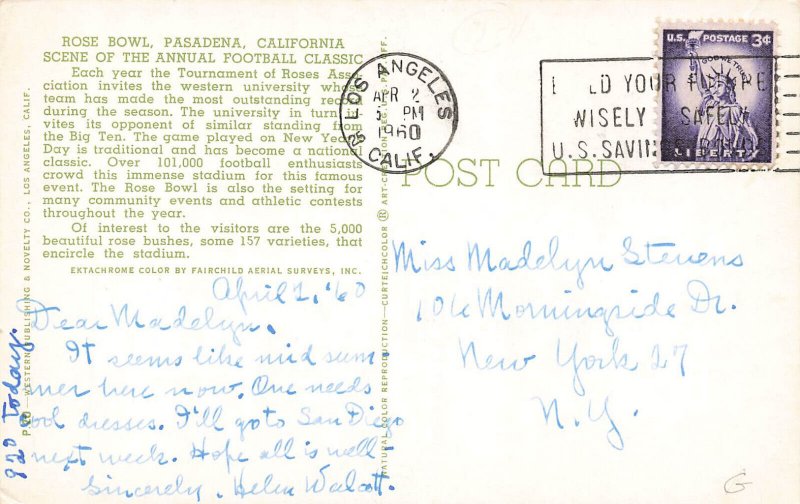 ROSE BOWL, PASADENA, CALIFORNIA
SCENE OF THE ANNUAL FOOTBALL CLASSIC
Each year the Tournament of Roses Asso-
ciation invites the western university whose
team has made the most outstanding record
during the season. The university in turn in-
vites its opponent of similar standing from
the Big Ten. The game played on New Year's
Day is traditional and has become a national
classic. Over 101,000 football enthusiasts
crowd this immense stadium for this famous
event. The Rose Bowl is also the setting for
many community events and athletic contests
throughout the year.
Of interest to the visitors are the 5,000
beautiful rose bushes, some 157 varieties, that
encircle the stadium.
EKTACHROME COLOR BY FAIRCHILD AERIAL SURVEYS, INC.
April 2, '60
Dear Madelyn,
It seems like mid sum
mer here now. One needs
cool dresses. I'll go to San Diego
next week. Hope all is well-
Sincerely, Helen Walcott.
82° Today.
WESTERN PUBLISHING & NOVELTY CO., LOS ANGELES, CALIF.
NATURAL COLOR REPRODUCTION—CURTEICHCOLOR ® ART-CREATION
LOS ANGELES
25 CALIF.
APR 2
PM
1960
YOUR FUTURE
WISELY SAFELY
U.S. SAVINGS BONDS
U.S. POSTAGE 3¢
IN GOD WE TRUST
LIBERTY
POST CARD
Miss Madelyn Stevens
106 Morningside Dr.
New York 27
N.Y.
G